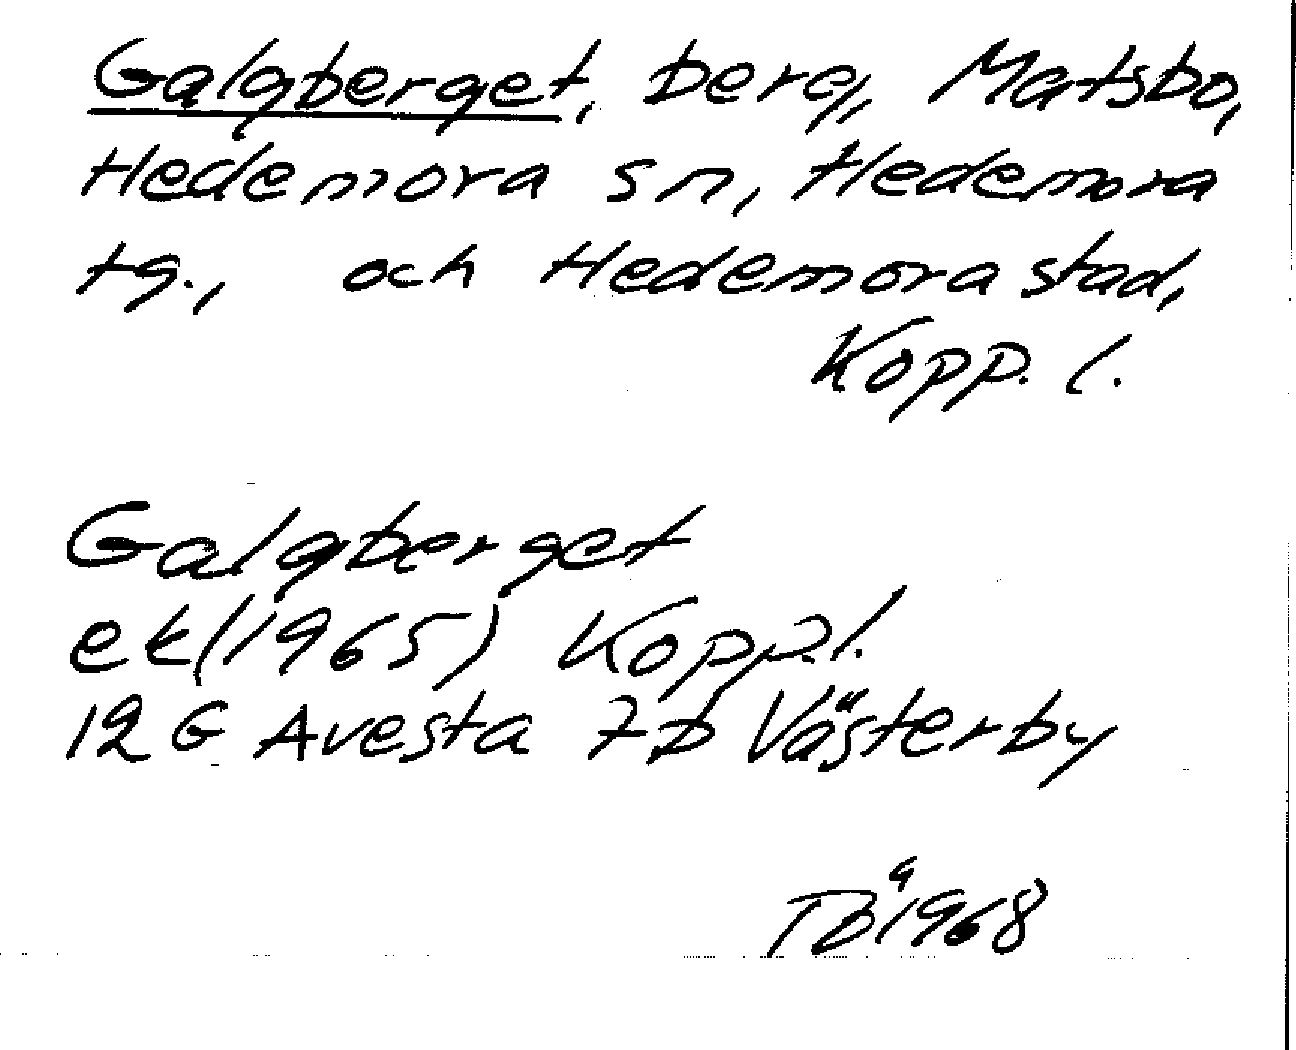 Galgberget, berg, Matsbo,
Hedemora sn, Hedemora
tg., och Hedemora stad,
Kopp. l.
Galgberget
ek (1965) Kopp. l.
12 G Avesta 7 b Västerby
1968